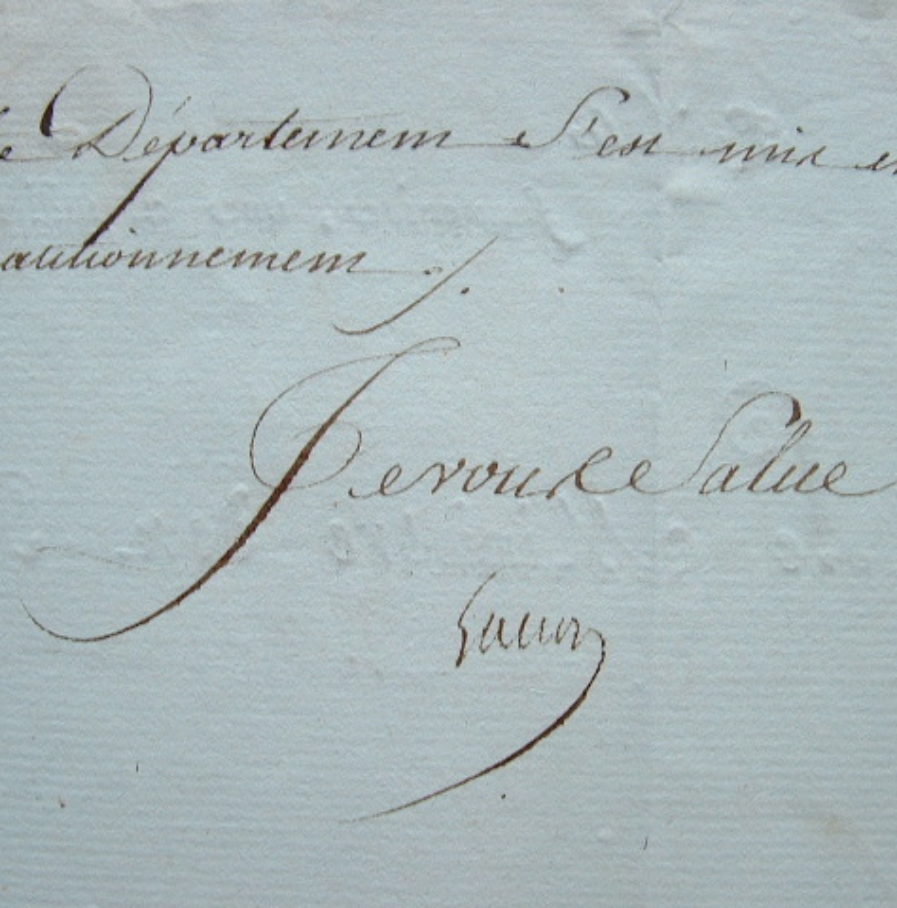 e Département s'est mis en
autionnement ./.
Je vous Salue
Gaudin